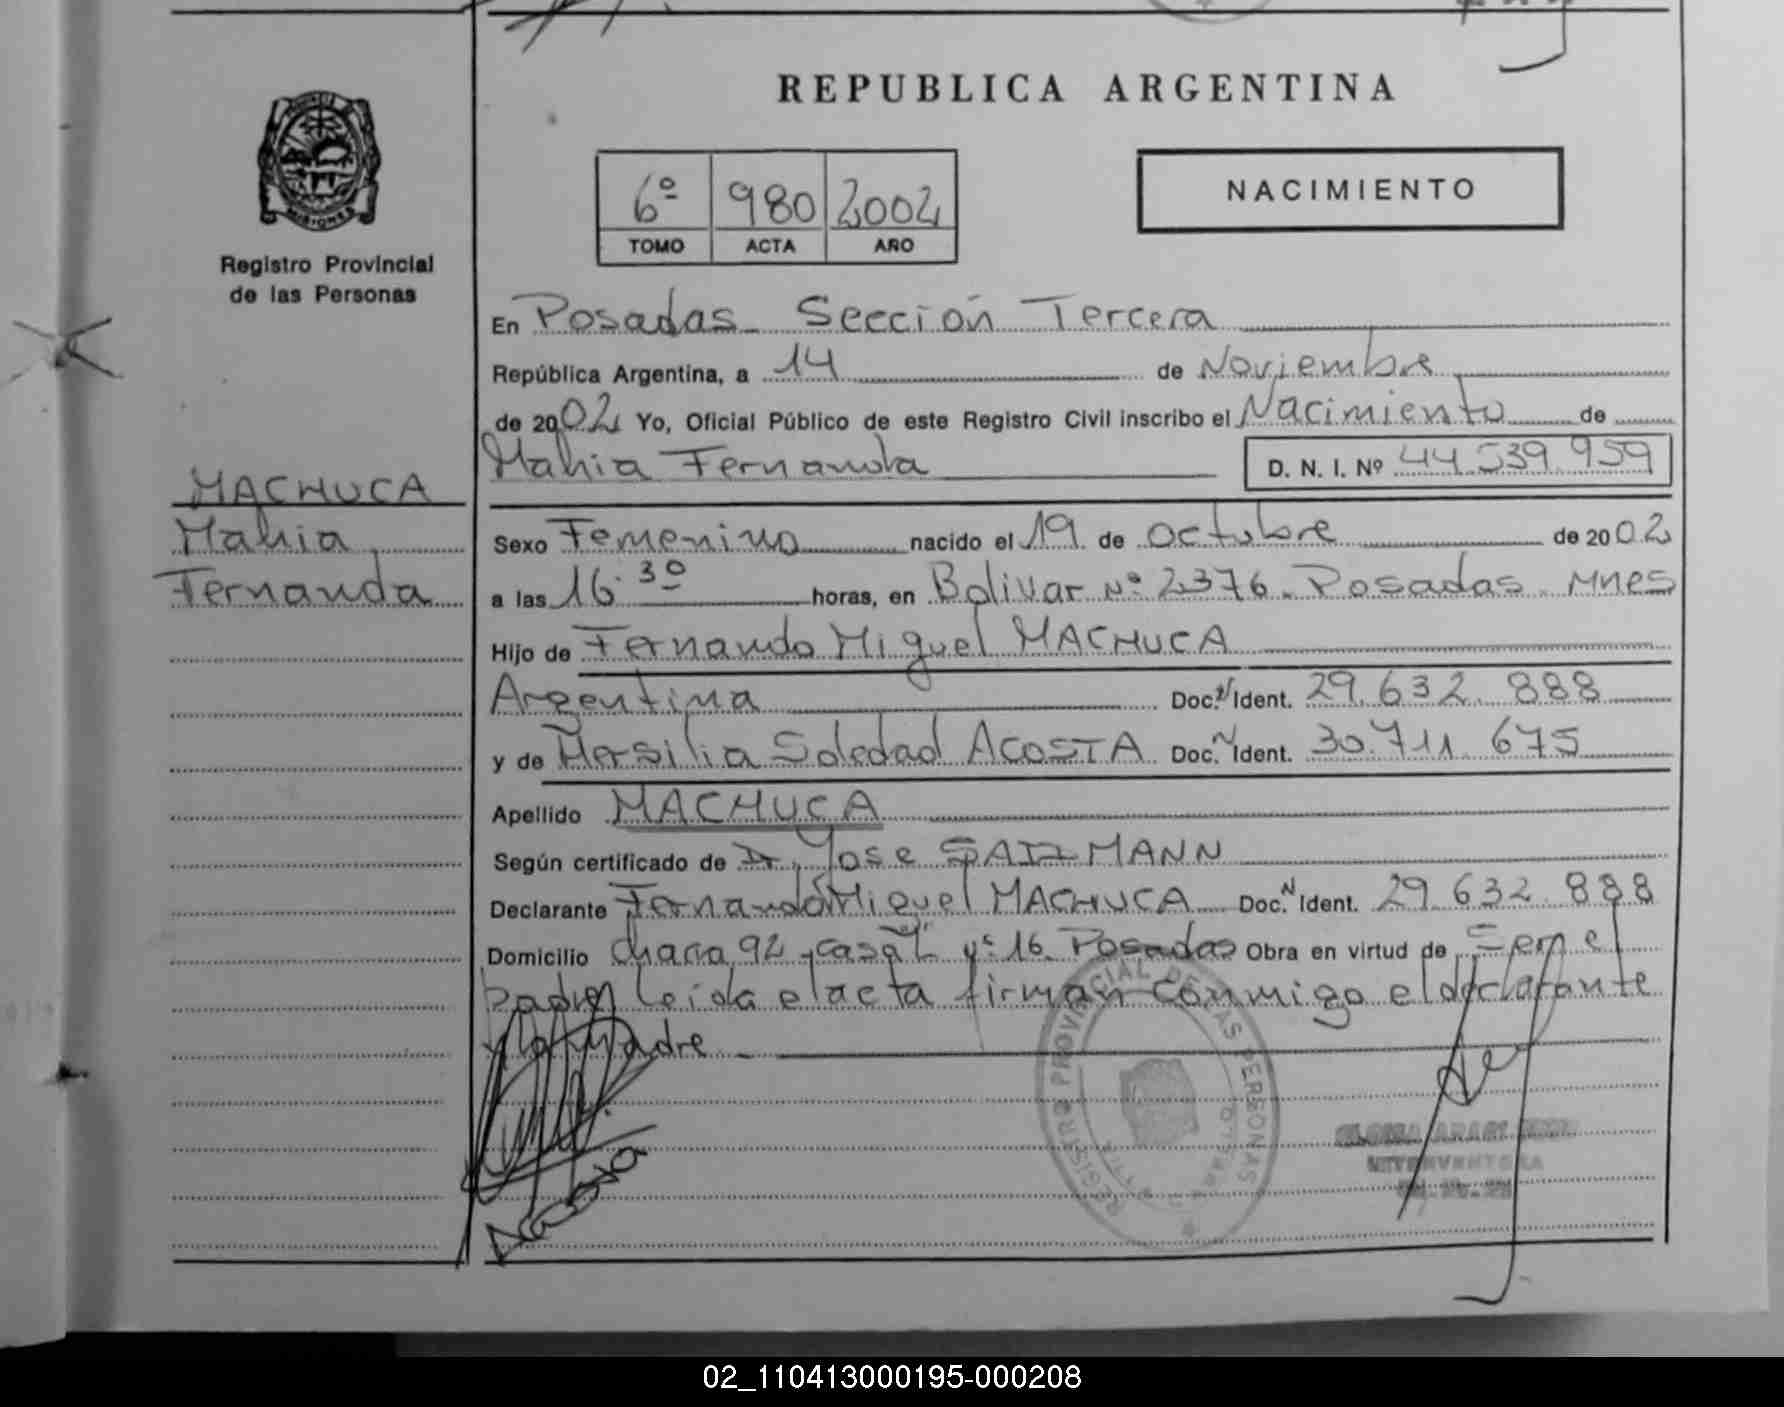 REPUBLICA ARGENTINA
MISIONES
Registro Provincial
de las Personas
6º 980 2002
TOMO ACTA AÑO
NACIMIENTO
En Posadas - Sección Tercera
República Argentina, a 14 de Noviembre
de 2002 Yo, Oficial Público de este Registro Civil inscribo el Nacimiento de
Mahia Fernanda D. N. I. Nº 44.539.959
MACHUCA
Mahia
Fernanda
Sexo Femenino nacido el 19 de octubre de 2002
a las 16.30 horas, en Bolivar Nº 2376. Posadas. Mnes
Hijo de Fernando Miguel MACHUCA
Argentina Doc. Ident. 29.632.888
y de Hersilia Soledad ACOSTA Doc. Ident. 30.711.675
Apellido MACHUCA
Según certificado de Dr. Jose MANN
Declarante Fernando Miguel MACHUCA Doc. N Ident. 29.632.888
Domicilio chacra 92, casa Nº 16 Posadas Obra en virtud de Ser el
padre, leída el acta firman conmigo el declarante
y la madre -
REGISTRO PROVINCIAL DE LAS PERSONAS
02_110413000195-000208